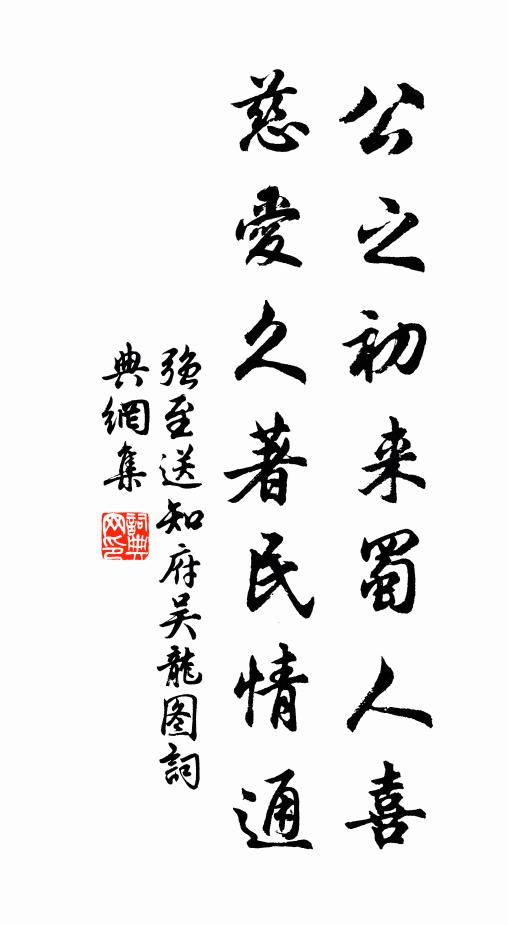 公之初来蜀人喜
慈愛久著民情通
强至送知府吴龍图詞
典網集
詞典
网印